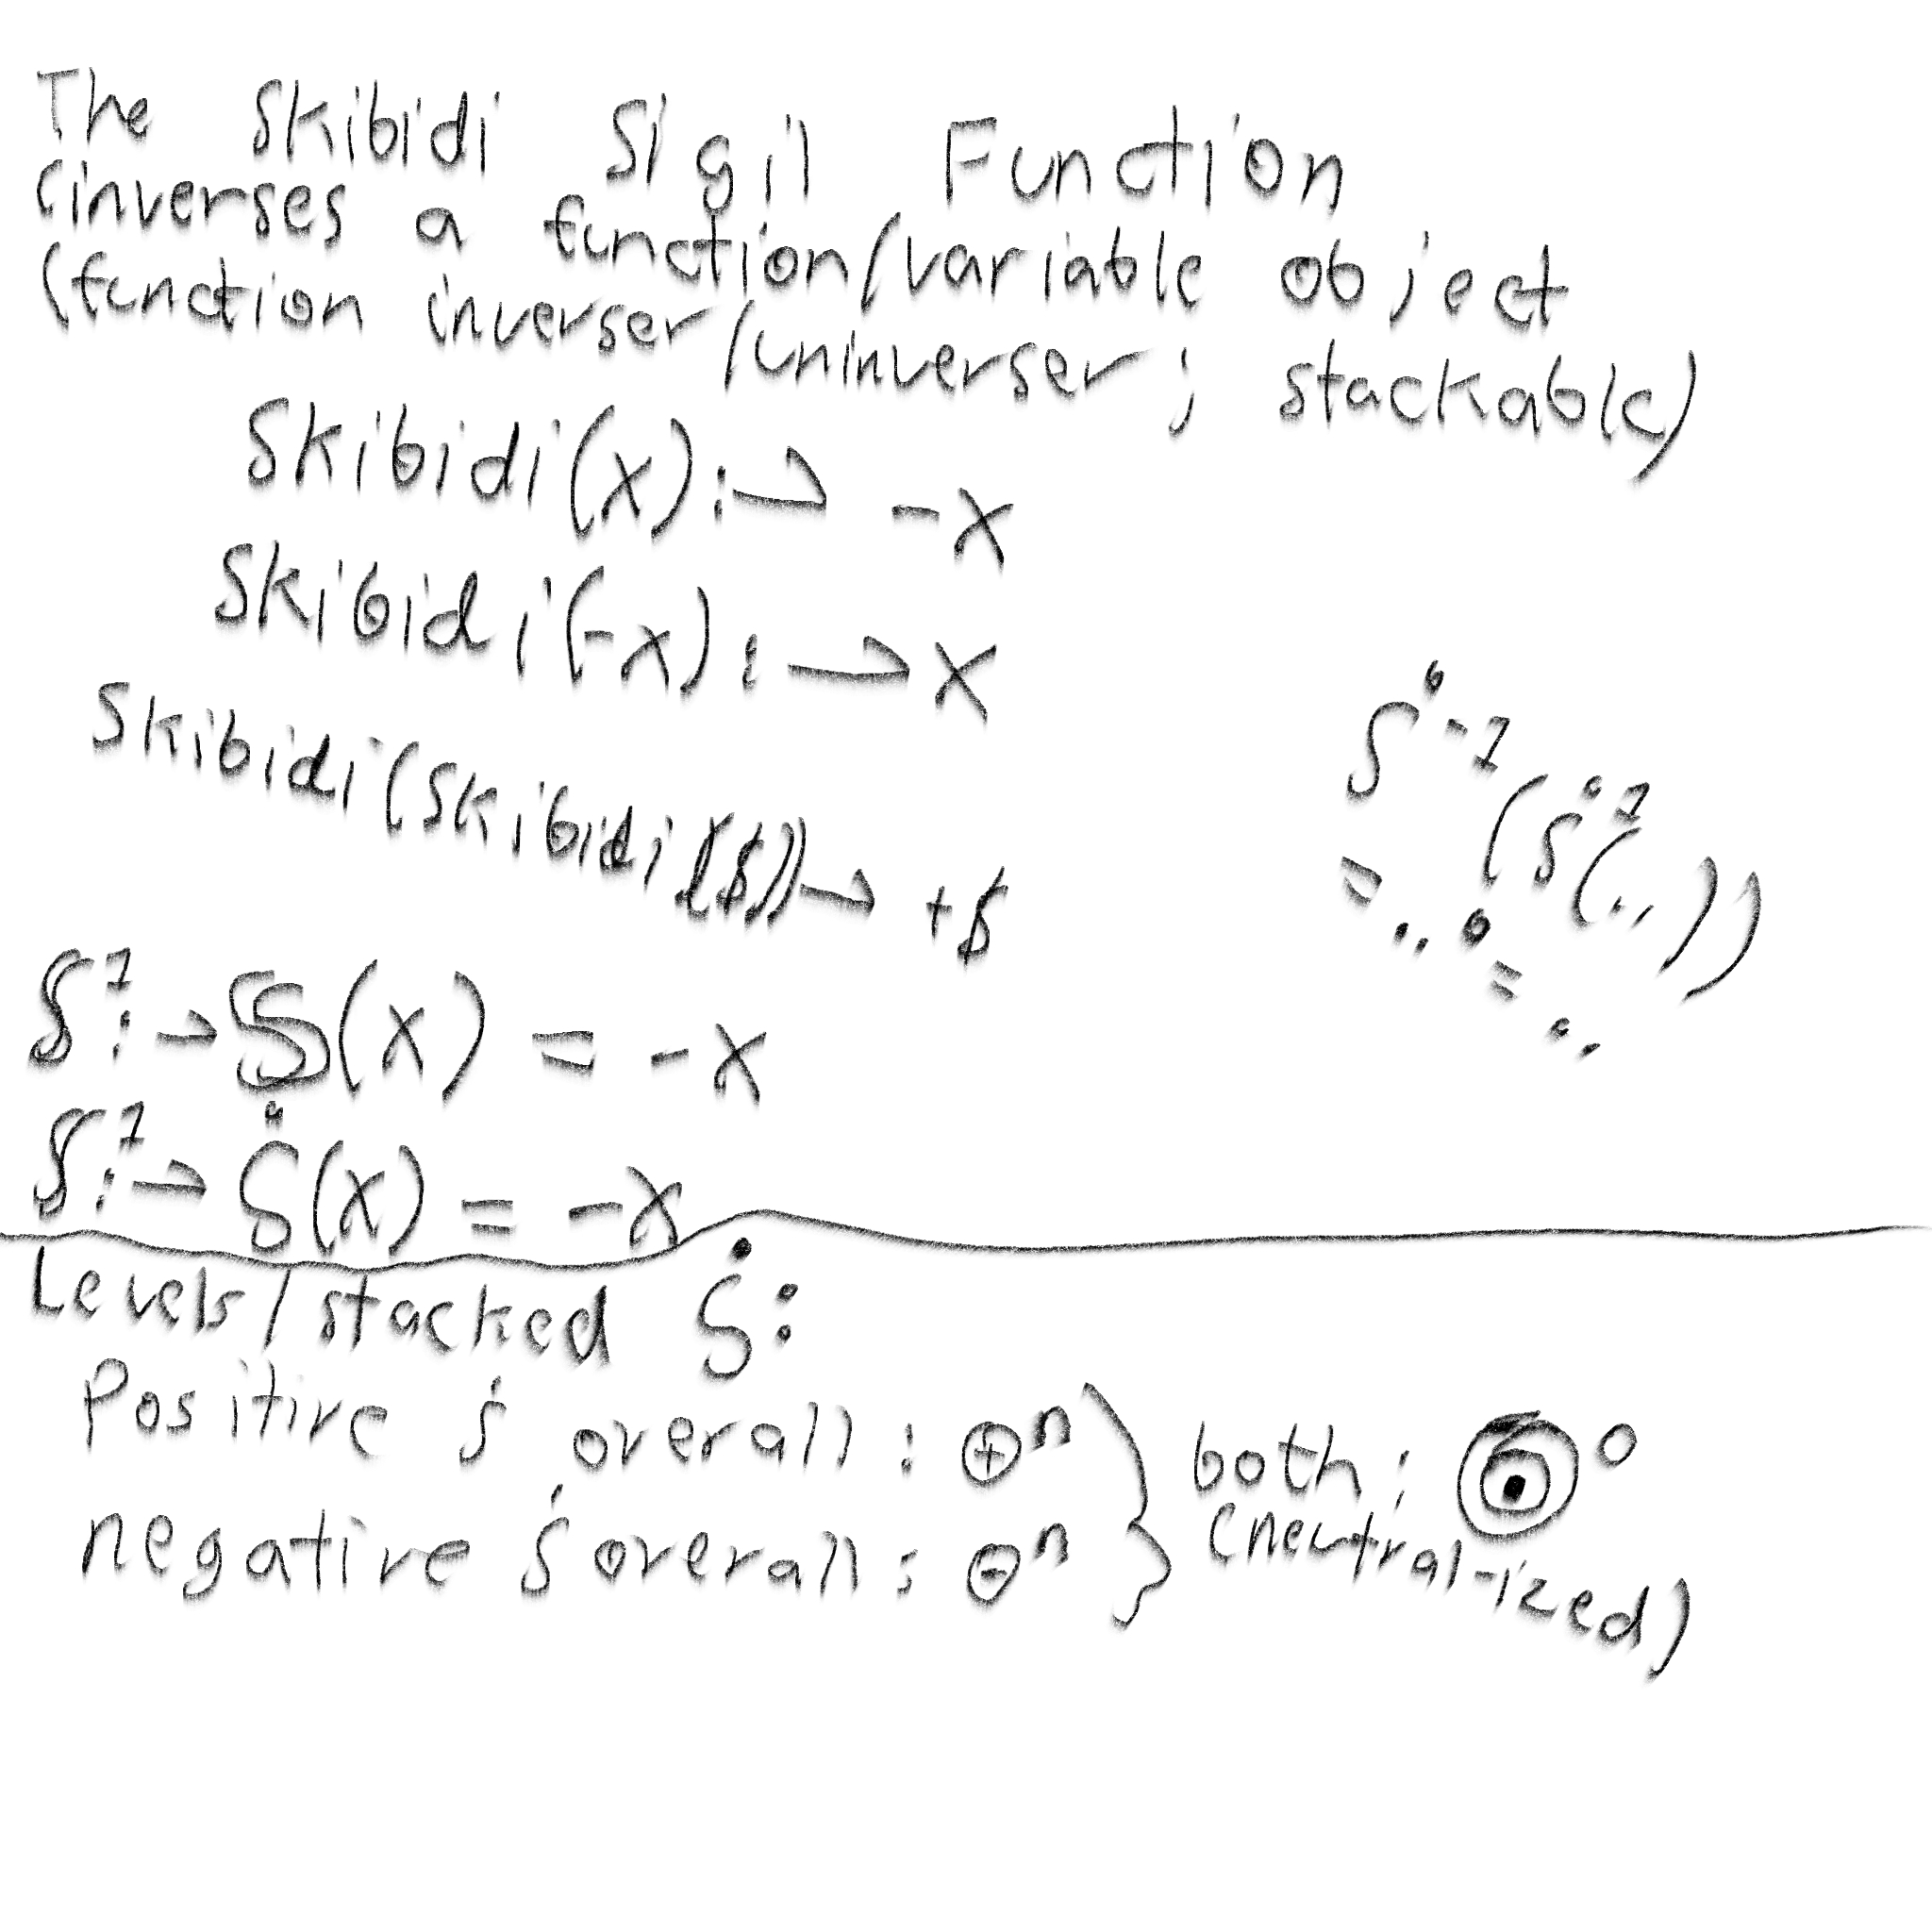 The Skibidi Sigil Function
(inverses a function/variable object
(function inverser/uninverser; stackable)
Skibidi(x):→ -x
Skibidi(-x):→x
Skibidi(Skibidi($))→ +$
Ṡ⁻¹(Ṡ¹(..))
= ..⁰ = ..
S¹:→S(x) = -x
S¹:→Ṡ(x) = -x
Levels/stacked Ṡ:
Positive Ṡ overall: ⊕ⁿ } both: ⦿⁰
negative Ṡ overall: ⊖ⁿ } (neutral-ized)